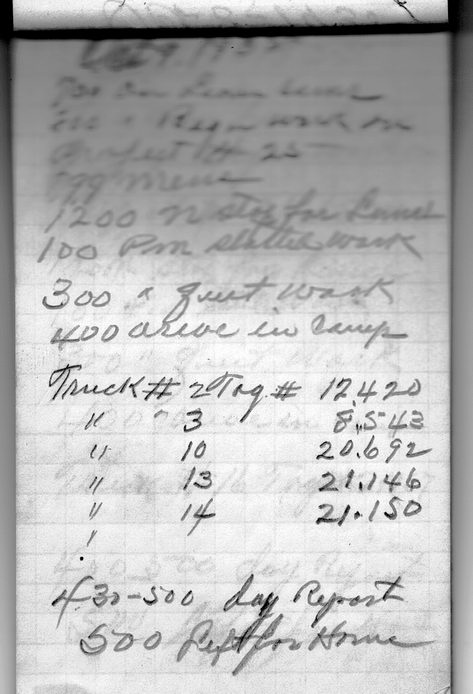 Oct 9, 1935
730 am Leave camp
800 " Began work on
Project # 25
99 mene
1200 n stop for Lunch
100 Pm started work
300 " quit work
400 arive in camp
Truck # 2 Tag # 12.420
" 3 8.543
" 10 20.692
" 13 21.146
" 14 21.150
"
430-500 day Report
500 Left for Home